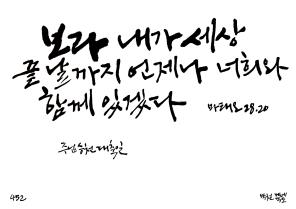 보라 내가 세상
끝 날까지 언제나 너희와
함께 있겠다
마태오 28.20
주님 승천 대축일
452